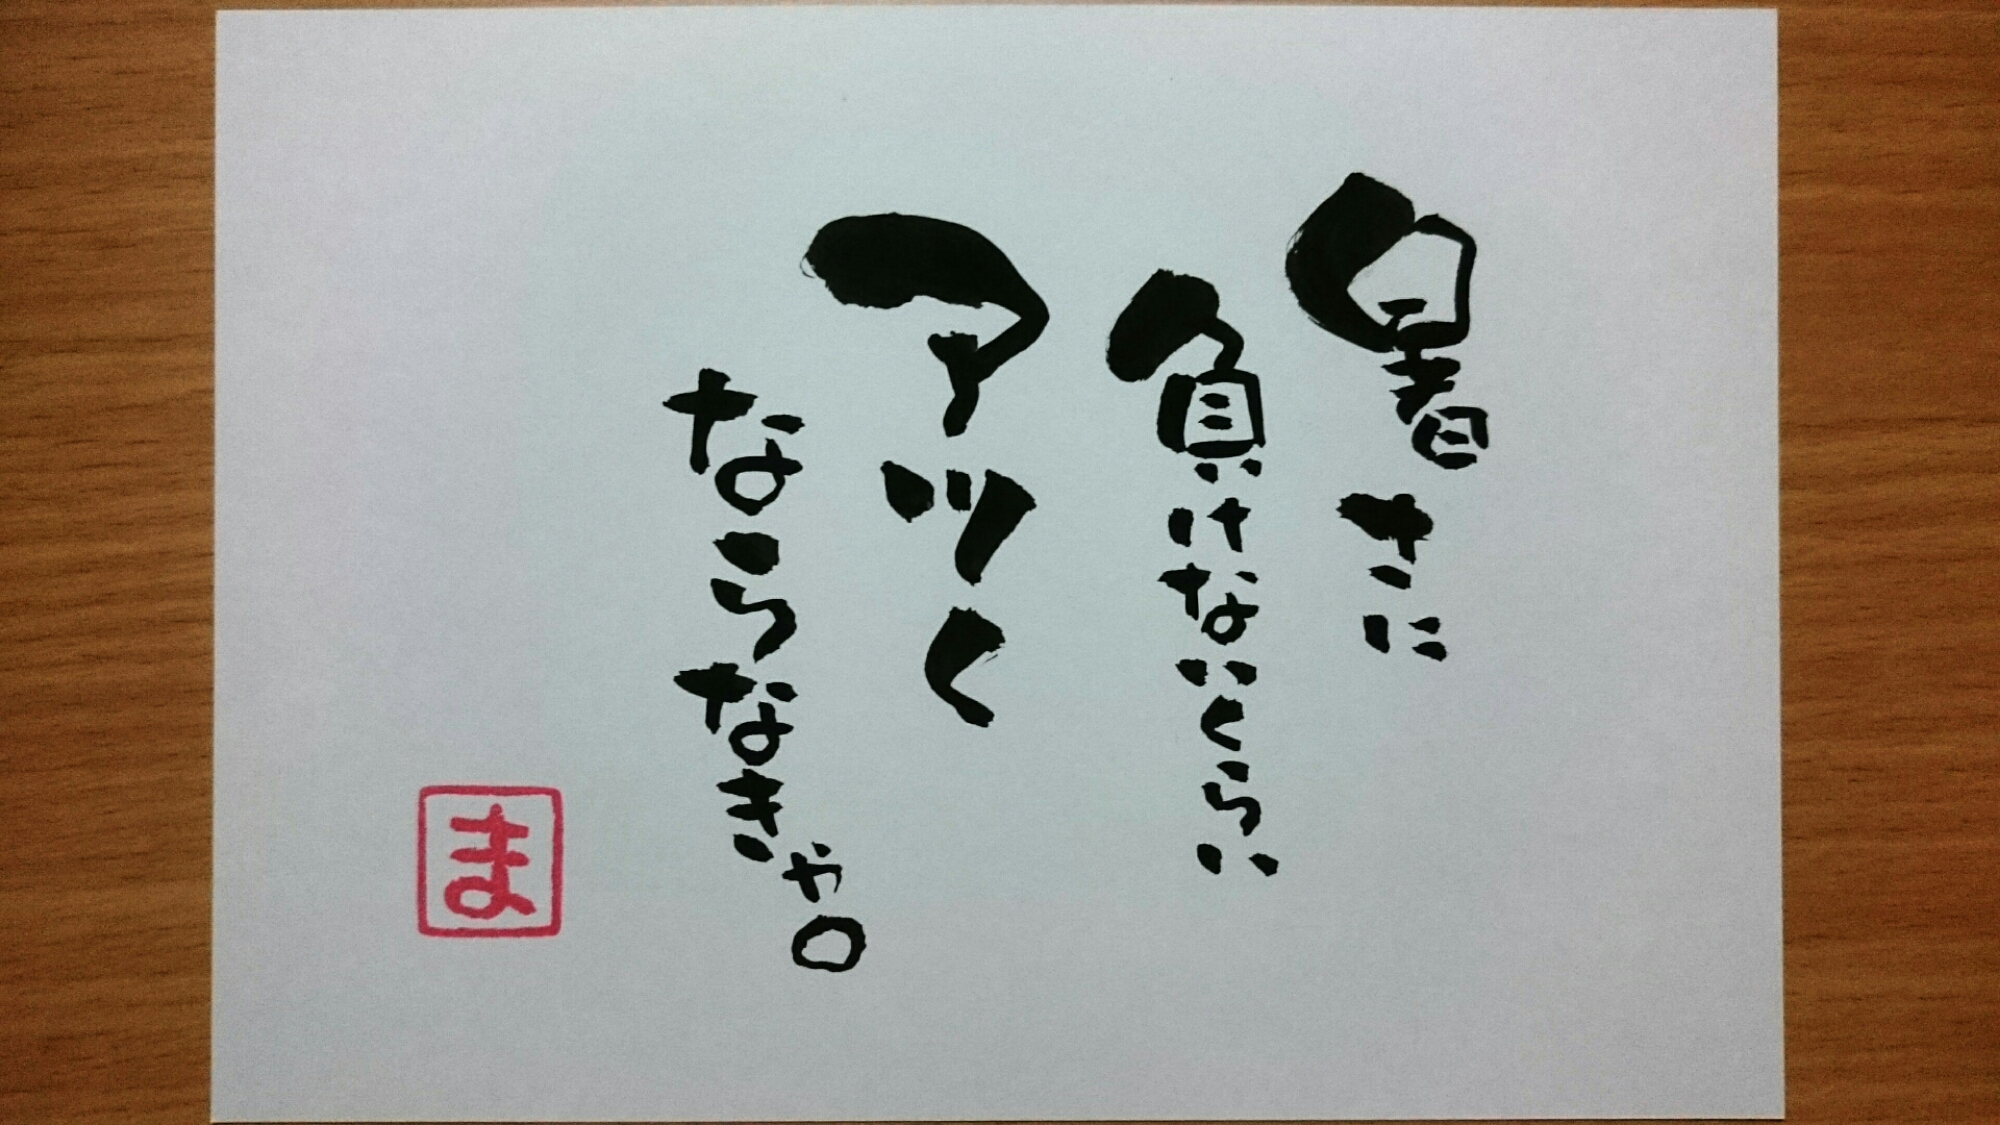 暑さに
負けないくらい
アツく
ならなきゃ。
ま